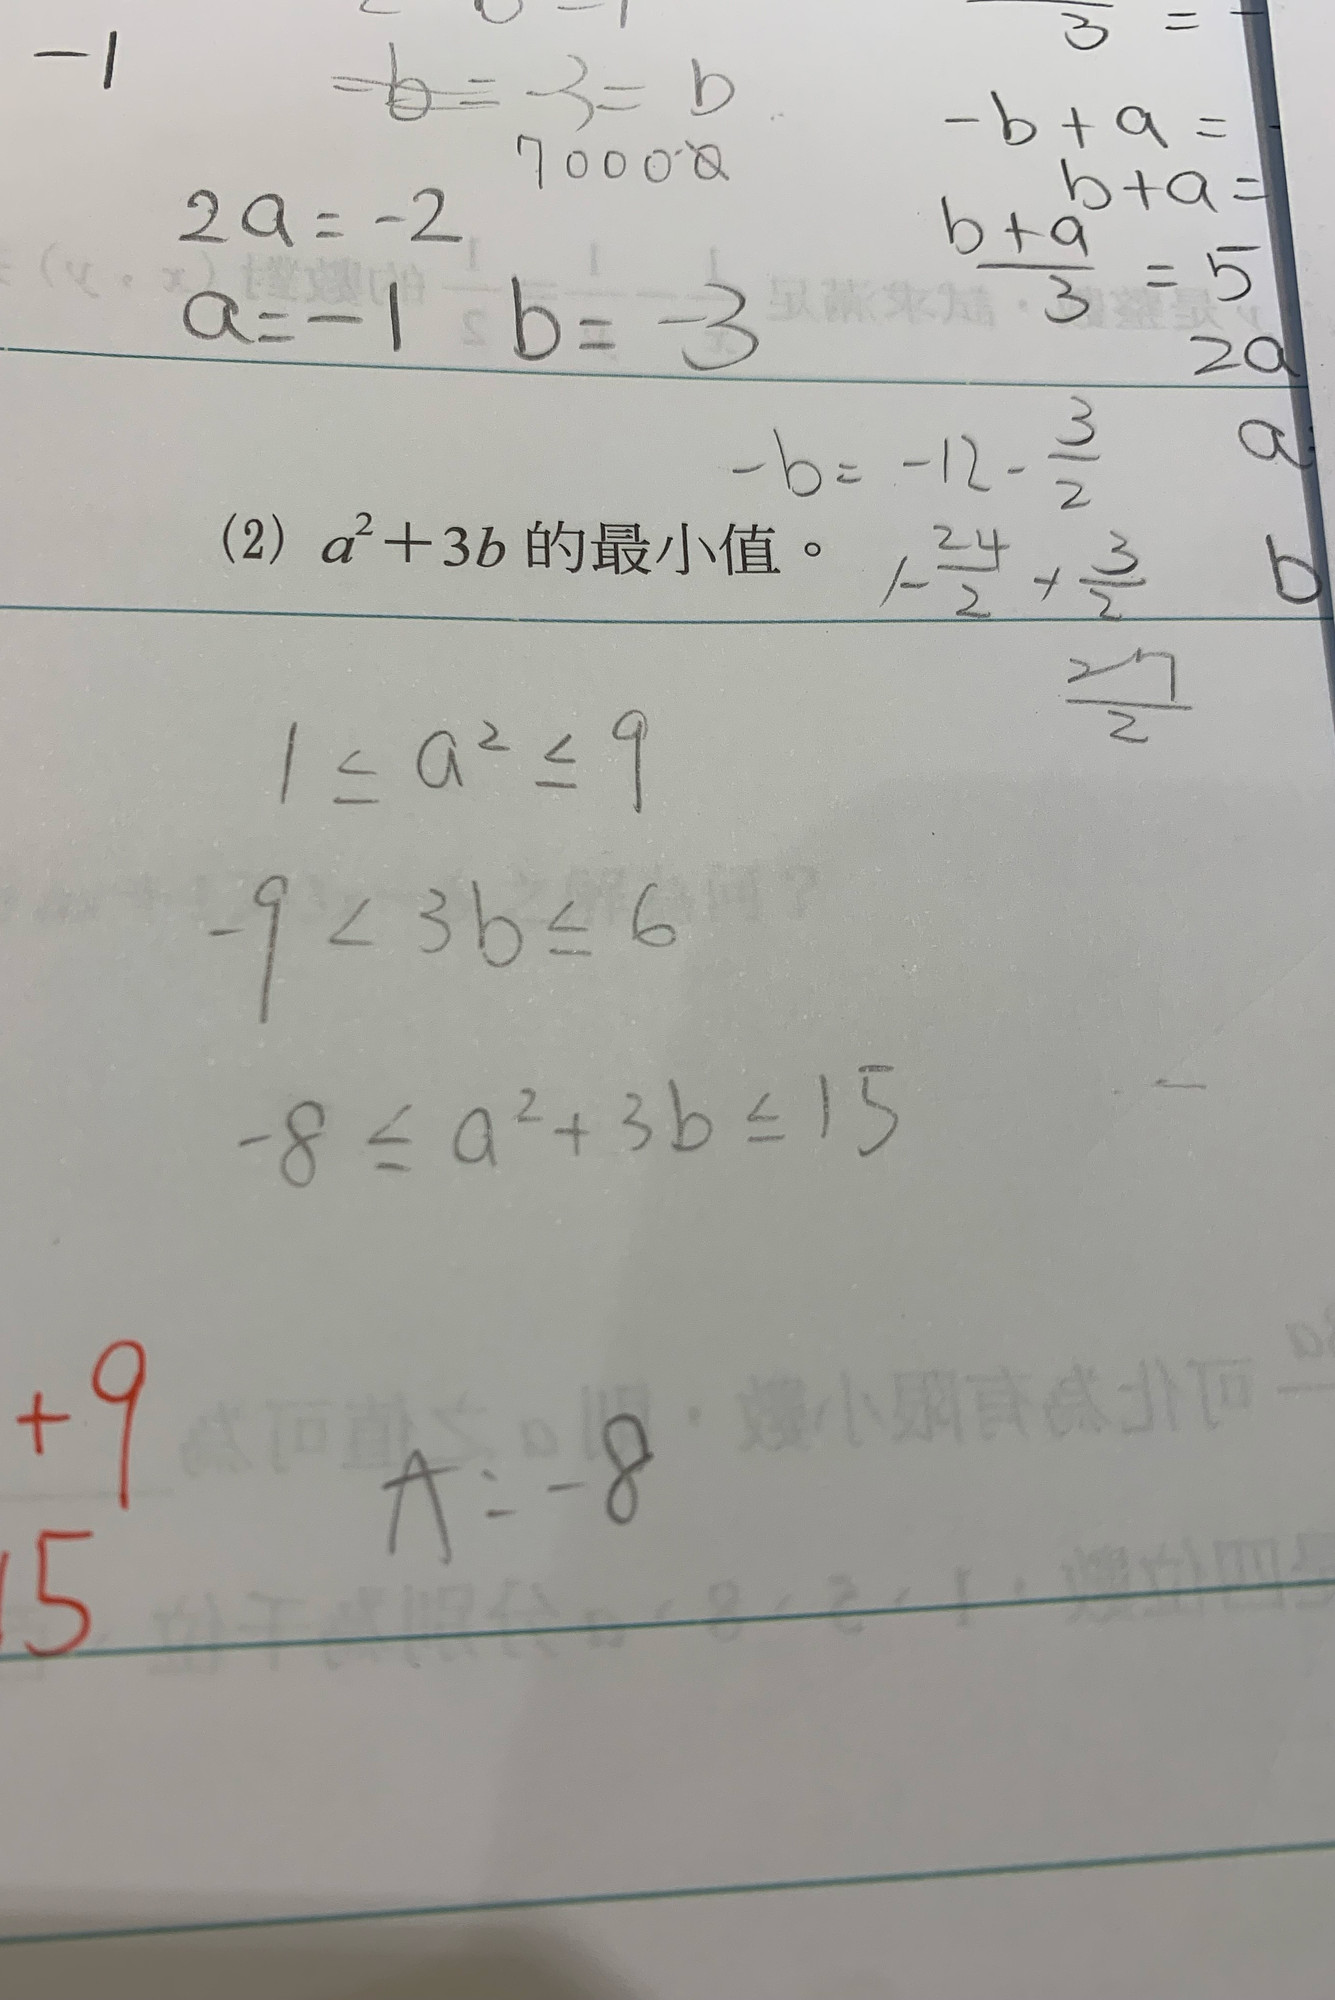 -1
-b = -3 = b
70000
2a = -2
a = -1 b = -3
3 =
-b + a =
b + a =
b + a
3 = 5
2a
a
b
-b = -12 - 3/2
(2) a²+3b 的最小值。
-24/2 + 3/2
27/2
1 ≤ a² ≤ 9
-9 < 3b ≤ 6
-8 ≤ a² + 3b ≤ 15
+9
15
A: -8